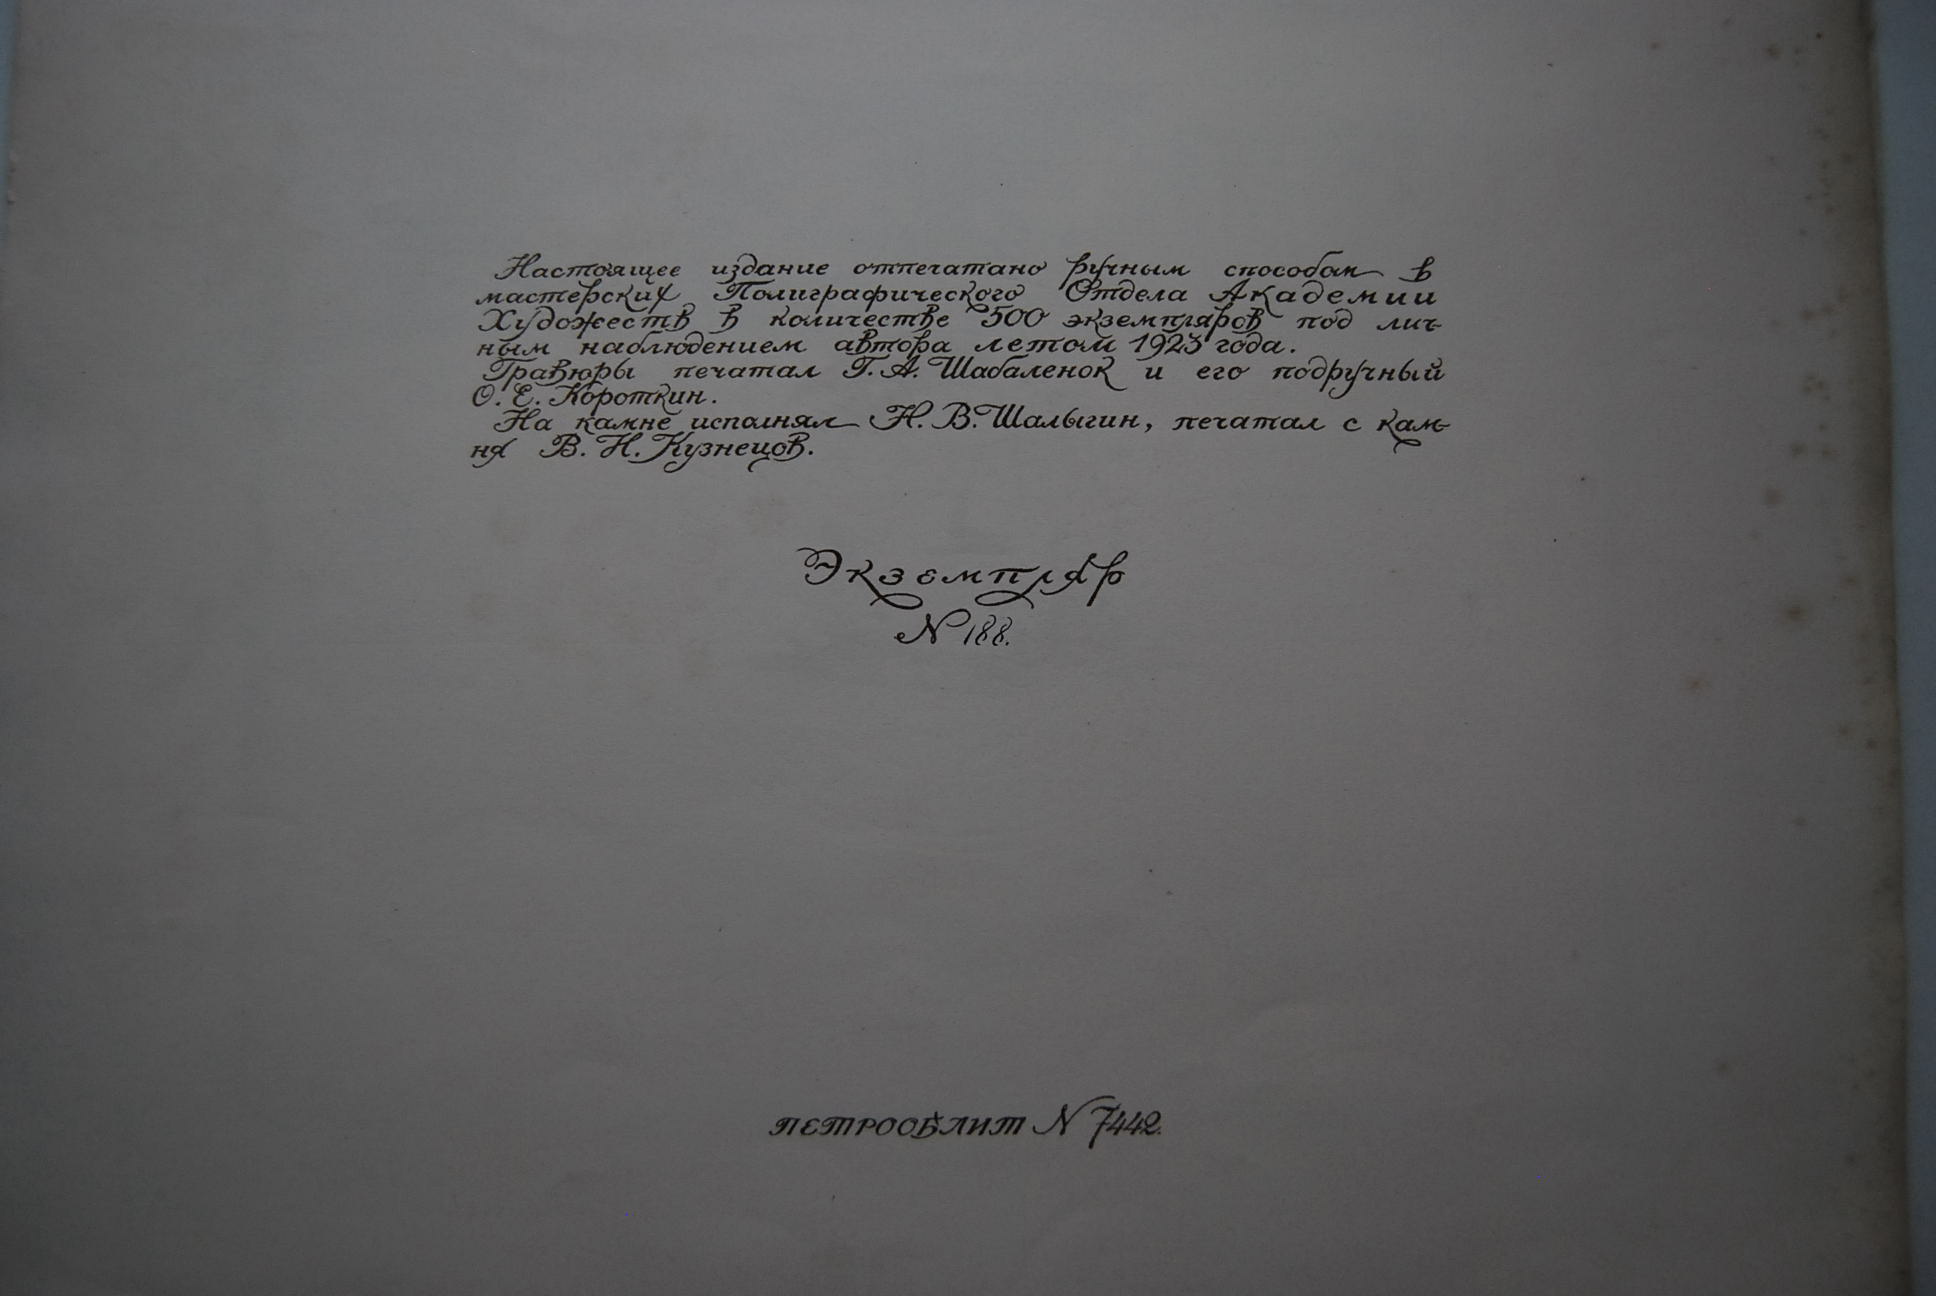 Настоящее издание отпечатано ручным способом в
мастерских Полиграфического Отдела Академии
Художеств в количестве 500 экземпляров под лич-
ным наблюдением автора летом 1923 года.
Гравюры печатал Г. А. Шабаленок и его подручный
О. Е. Короткин.
На камне исполнял Н. В. Шалыгин, печатал с кам-
ня В. Н. Кузнецов.
Экземпляр
N 188.
ПЕТРООБЛИТ N 7442.